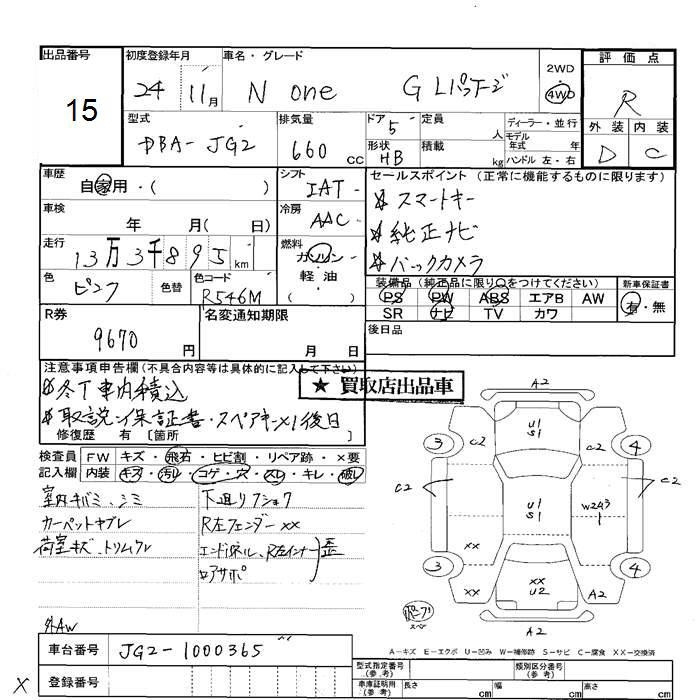 出品番号 初度登録年月 車名・グレード 評価点
15 24 11月 N one G Lパッケージ 2WD 4WD R
型式 排気量 ドア 定員 ディーラー・並行 外装 内装
DBA-JG2 660 cc 5 人 モデル年式 年 D C
形状 積載 ハンドル 左・右
HB kg
車歴 シフト セールスポイント (正常に機能するものに限ります)
自家用・( ) IAT スマートキー
車検 冷房 純正ナビ
年 月( 日) AAC バックカメラ
走行 燃料
13万3千895km ガソリン
軽・油
色 色替 色コード 装備品 (純正品に限り○をつけてください) 新車保証書
ピンク R546M PS PW ABS エアB AW 有・無
SR ナビ TV カワ
R券 名変通知期限 後日品
9670 円 月 日
注意事項申告欄(不具合内容等は具体的に記入して下さい)
★ 買取店出品車
冬T車内積込
取説、保証書・スペアキー×1後日
修復歴 有 〔箇所 〕
検査員 FW キズ・飛石・ヒビ割・リペア跡・X要
記入欄 内装 キズ・汚れ・コゲ・穴・スレ・キレ・破レ
室内キバミ、シミ 下廻りフショク
カーペットヤブレ R左フェンダーxx
荷室キズ、トリムワレ エンドパネル、R左インナー 歪
ロアサポ
外AW
A2
U1
S1
C2 C2
3 4
C2 C2
U1
S1
W2A3
1
xx
3 4
xx xx A2
U2
A2
スペア
A−キズ E−エクボ U−凹み W−補修跡 S−サビ C−腐食 XX−交換済
車台番号 JG2-1000365
型式指定番号(参考) 類別区分番号(参考)
X 登録番号 車庫証明用(参考) 長さ cm 幅 cm 高さ cm